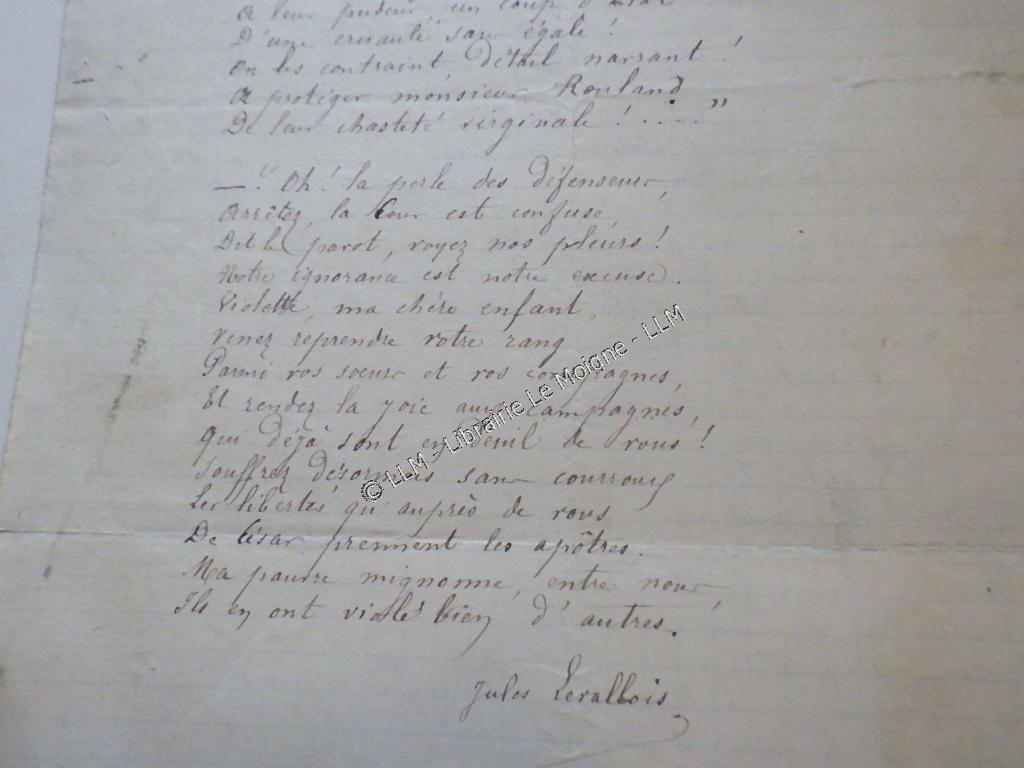 A leur pudeur un coup d'État
D'une cruauté sans égale !
On les contraint, détail narrant !
A protéger monsieur Rouland
De leur chasteté virginale ! ....."
— " Oh ! la perle des défenseurs,
Arrêtez, la Cour est confuse,
Dit le pavot, voyez nos pleurs !
Notre ignorance est notre excuse.
Violette, ma chère enfant,
Venez reprendre votre rang
Parmi vos soeurs et vos compagnes,
Et rendez la joie aux campagnes,
Qui déjà sont en deuil de vous !
Souffrez désormais sans courroux
Les libertés qu'auprès de vous
De César prennent les apôtres.
Ma pauvre mignonne, entre nous,
Ils en ont violé bien d'autres.
Jules Levallois
© LLM - Librairie Le Moigne - LLM